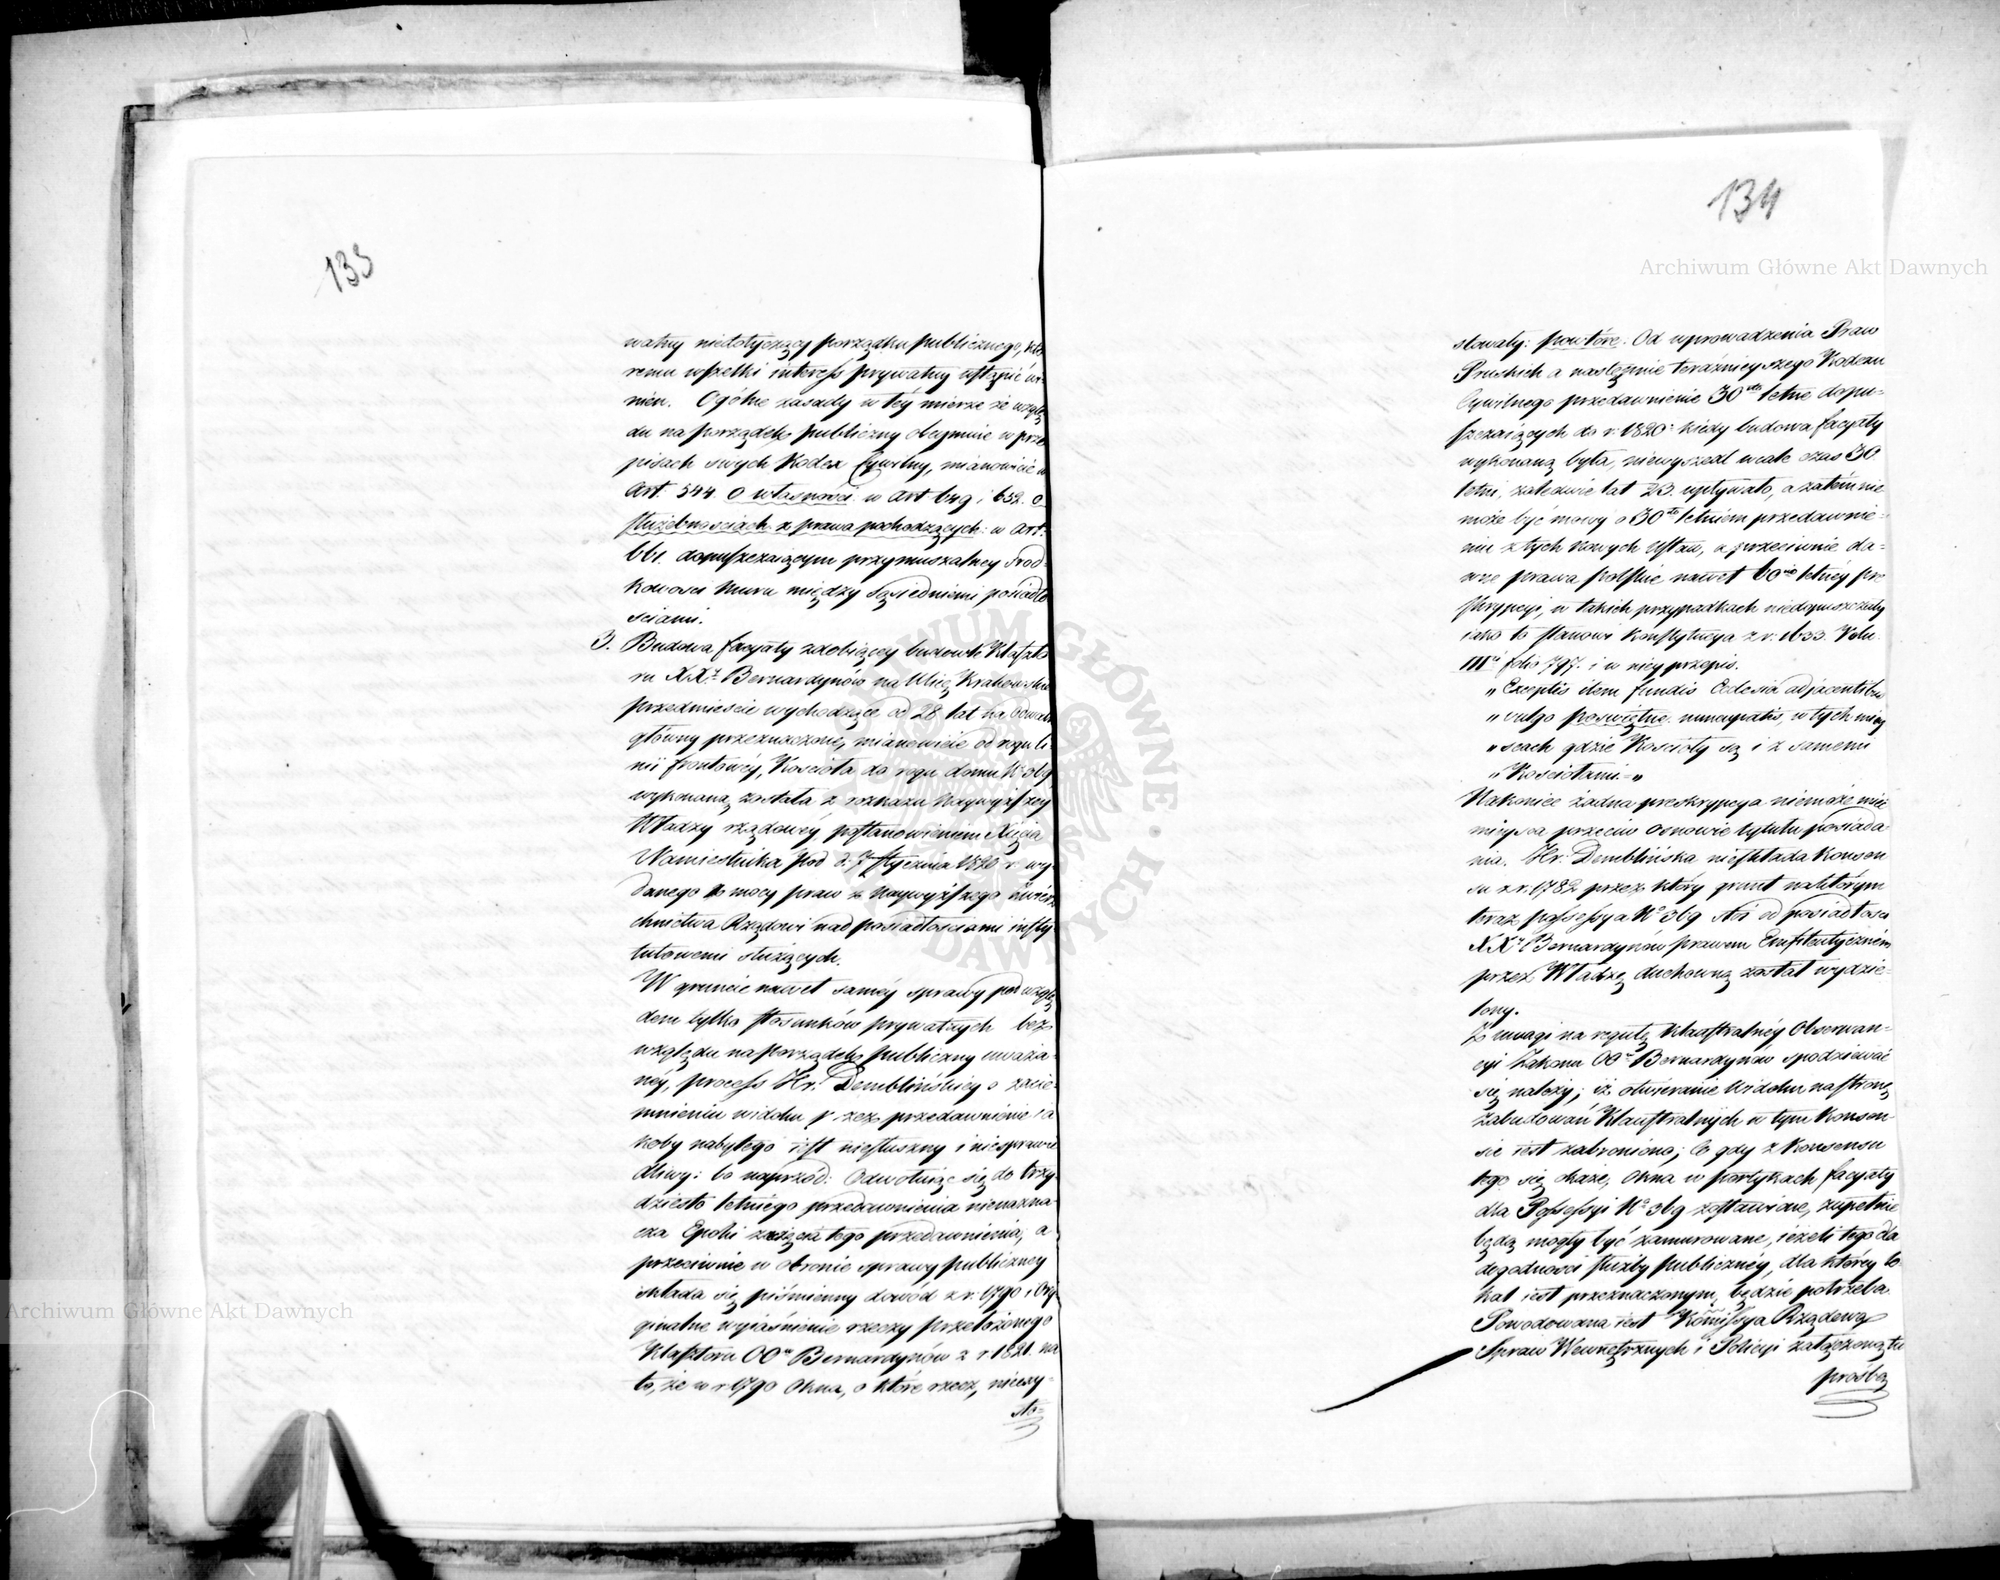 133
watny niedotyczący porządku publicznego, któ
remu wszelki interess prywatny ustąpić wi-
nien. Ogólne zasady w téy mierze ze wzglę
du na porządek publiczny obeymuie w prze
pisach swych Kodex Cywilny, mianowicie w
Art. 544. o własności w art 649 i 652. o
służebnościach z prawa pochodzących: w art.
661. dopuszczaiącym przymuszalney środ-
kowości muru między sąsiedniemi posiadło
ściami.
3. Budowa facyaty zdobiącey budowle Klaszto
ru XX. Bernardynów na Ulicę Krakowskie
przedmieście wychodzące od 28 lat na Odwach
główny przeznaczone, mianowicie od rogu li-
nii frontowéy, Kościoła do rogu domu No 369
wykonaną została z rozkazu Naywyższey
Władzy rządowéy, postanowieniem Xięcia
Namiestnika pod d. 7 Stycznia 1820 r. wy-
danego mocy praw z Naywyższego zwierz
chnictwa Rządowi nad posiadłościami insty
tutowemi służących.
W gruncie nawet saméy sprawy pod wzglę
dem tylko stosunków prywatnych bez
względu na porządek publiczny uważa-
néy, process Hr. Demblińskiey o zacie-
mnieniu widoku przez przedawnienie ia
koby nabytego iest niesłuszny i niesprawie
dliwy: bo naprzód: Odwołuiąc się do trzy-
dziesto letniego przedawnienia nienazna-
cza Epoki zaczęcia tego przedawnienia, a
przeciwnie w obronie sprawy publiczney
składa się piśmienny dowód z r. 1790 i Ory
ginalne wyiaśnienie rzeczy przełożonego
Klasztoru OO. Bernardynów z r 1821. na
to, że w r. 1790 okna, o które rzecz, nieexy-
sto=
134
stowały: powtóre: Od wprowadzenia Praw
Pruskich a następnie teraźnieyszego Kodexu
Cywilnego przedawnienie 30 letne dopu-
szczaiących do r. 1820 kiedy budowa facyaty
wykonaną była, niewyszedł wcale czas 30.
letni, zaledwie lat 23. upłynęło, a zatém nie
może być mowy o 30 letniem przedawnie-
niu z tych nowych Ustaw, a przeciwnie da-
wne prawa polskie nawet 60 letniéy pre
skrypcyi, w takich przypadkach niedopuszczały
iako to stanowi Konstytucya z r. 1633. Volu.
III folio 797. i w niey przepis.
„ Exceptis item fundis Eclesia adjacentibus
„ vulgo poswiętne nuncupatis, w tych miey
„ scach gdzie Kościoły są i z samemi
„ Kościołami. „
Nakoniec żadna preskrypcya niemoże mieć
mieysca przeciw osnowie tytułu posiada
nia. Hr. Demblińska nieskłada Konsen
su z r. 1782 przez który grunt na którym
teraz possessya No 369 stoi od posiadłości
XX. Bernardynów prawem Emfiteutyczném
przez Władzę duchowną został wydzie-
lony.
Z uwagi na regułę Klaustralnéy Obserwan-
cyi Zakonu OO. Bernardynów spodziewać
się należy; iż otwieranie widoku na stronę
zabudowań Klaustralnych w tym Konsen-
sie iest zabronione; Co gdy z Konsensu
tego się okaże, Okna w portykach facyaty
dla Possessyi No 369 zostawione, zupełnie
będą mogły być zamurowane, ieżeli tego dla
dogodności służby publicznéy, dla którey lo-
kal iest przeznaczonym, będzie potrzeba.
Powodowana iest Kommissya Rządowa
Spraw Wewnętrznych i Policyi załączoną tu
prośbą
Archiwum Główne Akt Dawnych
Archiwum Główne Akt Dawnych
ARCHIWUM GŁÓWNE AKT DAWNYCH